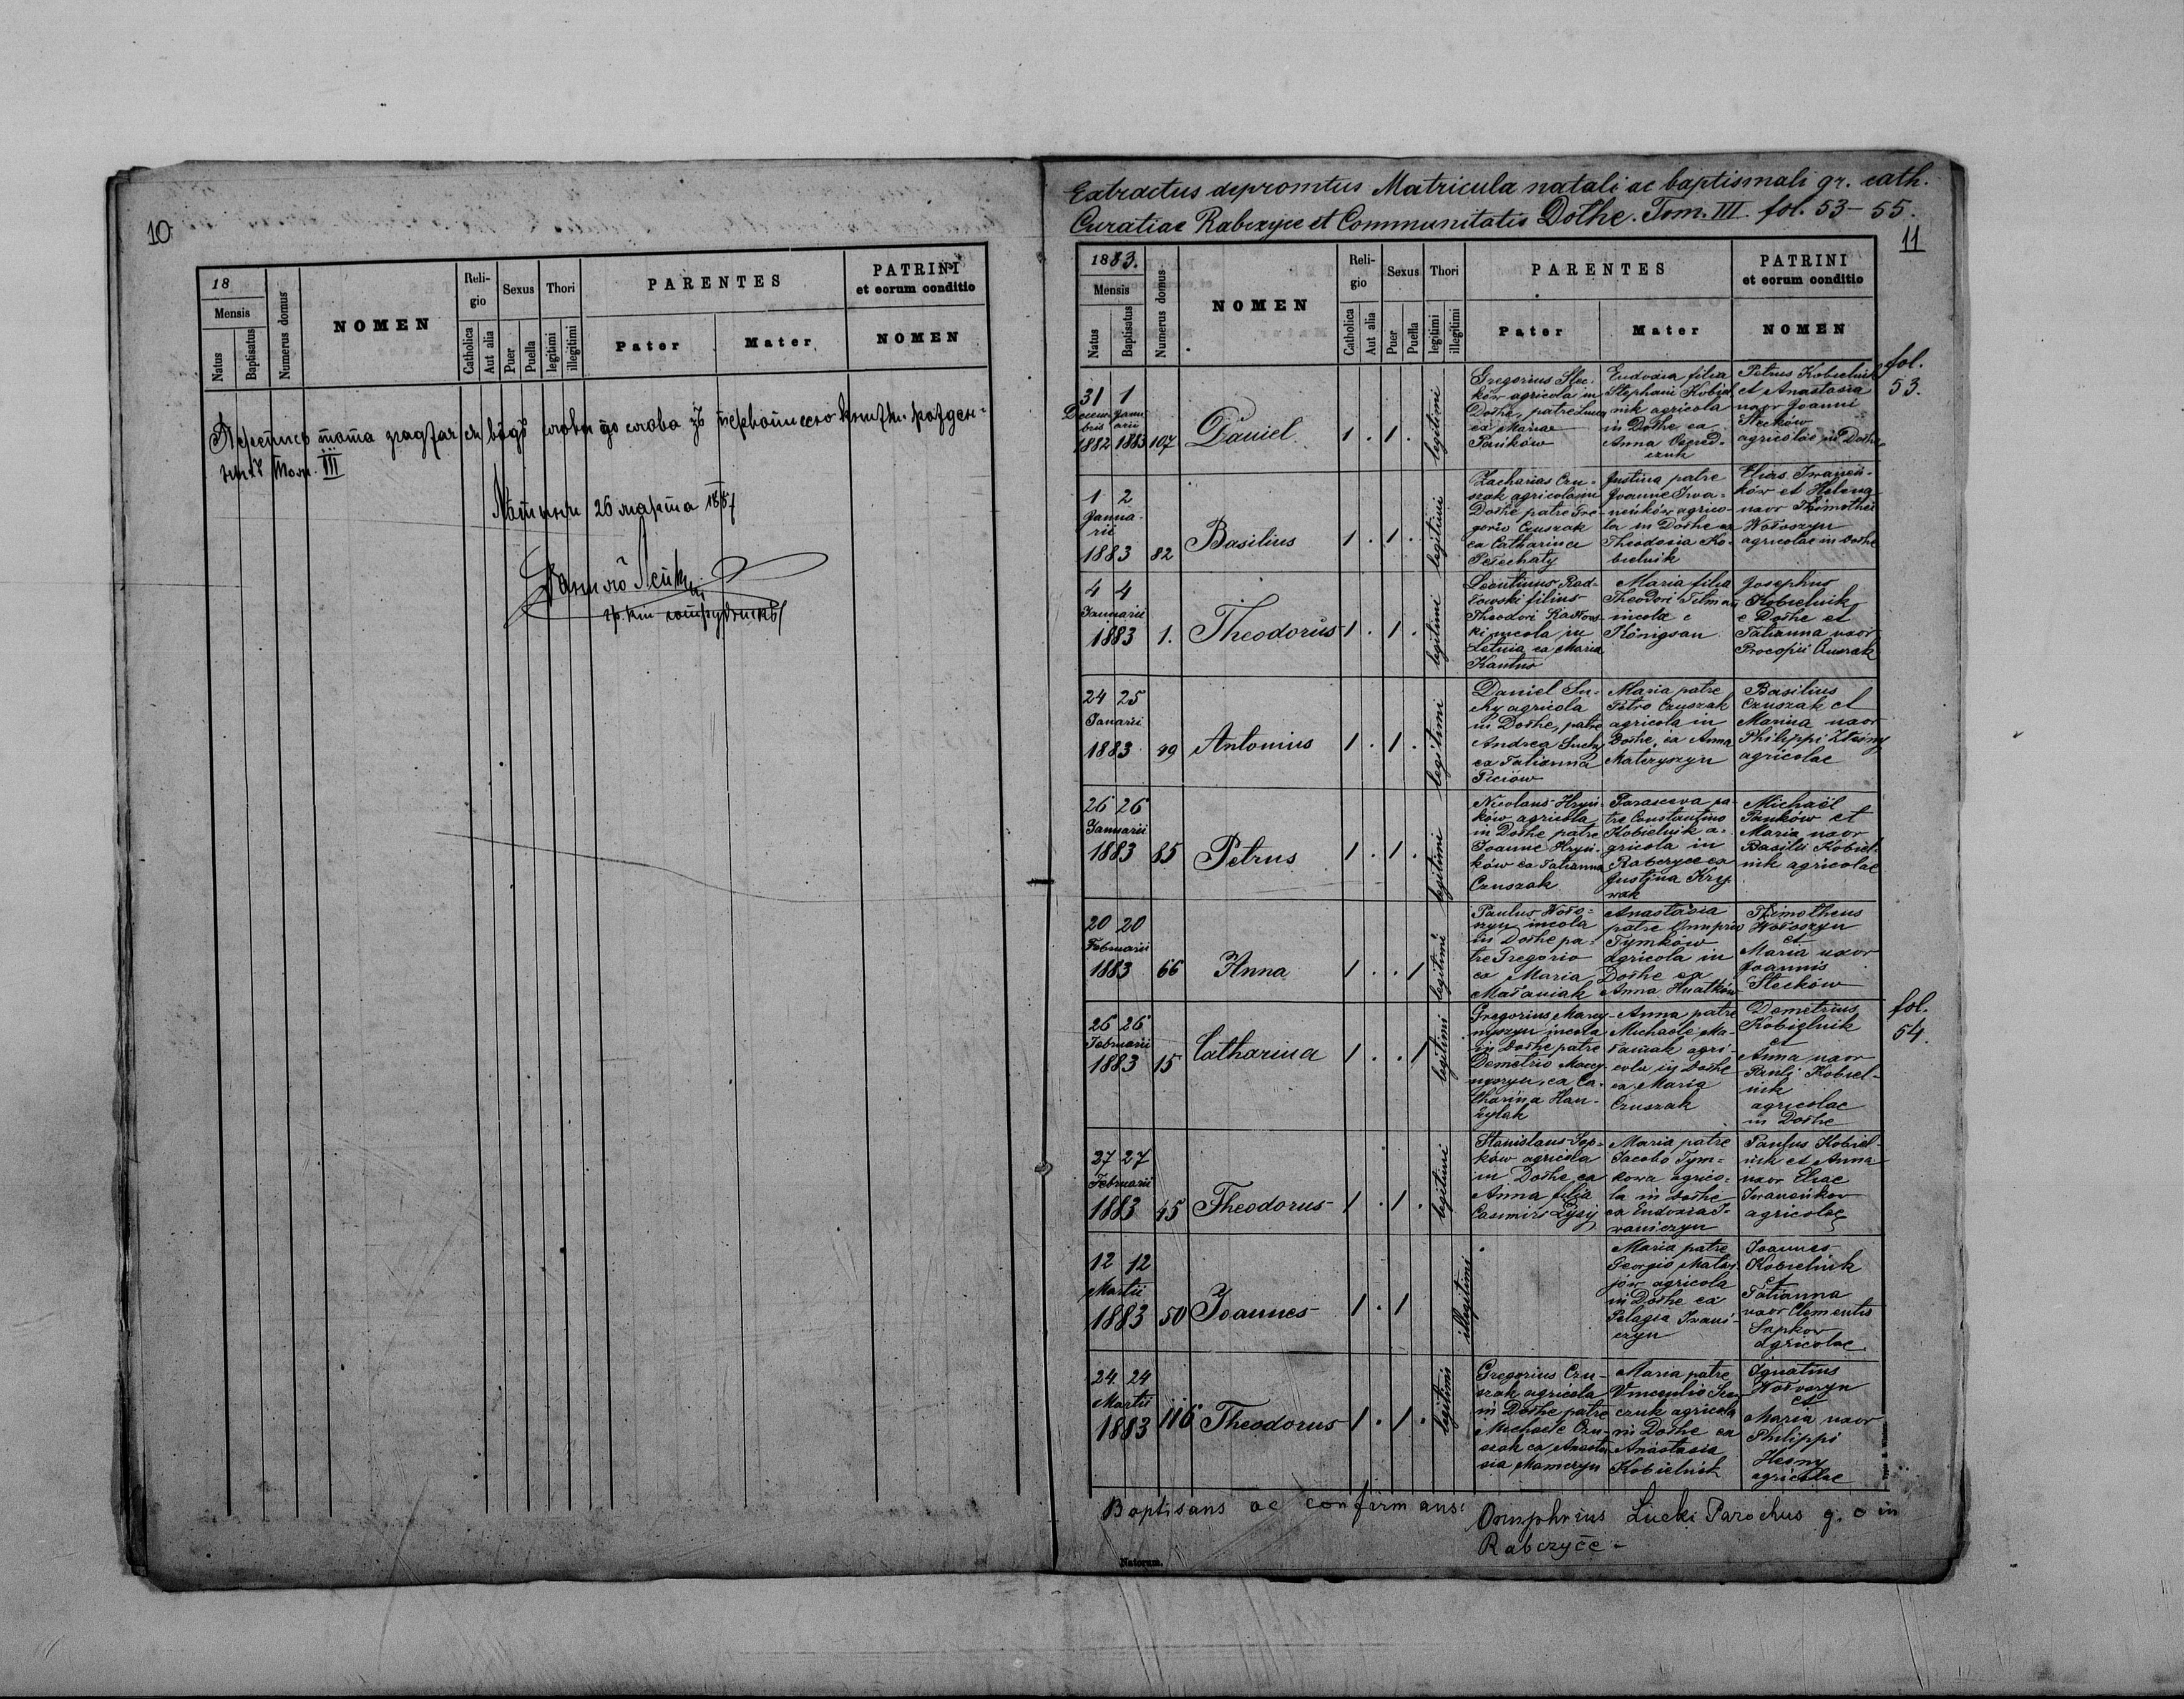 10
18
Mensis
Natus
Baptisatus
Numerus domus
NOMEN
Reli-
gio
Catholica
Aut alia
Sexus
Puer
Puella
Thori
legitimi
illegitimi
PARENTES
Pater
Mater
PATRINI
et eorum conditio
NOMEN
слова до слова зъ
Том. III
26 марта 1887
Extractus depromtus Matricula natali ac baptismali gr. cath.
Curatiae Rabczyce et Communitatis Dołhe. Tom. III. fol. 53-55.
11
1883.
Mensis
Natus
Baptisatus
Numerus domus
NOMEN
Reli-
gio
Catholica
Aut alia
Sexus
Puer
Puella
Thori
legitimi
illegitimi
PARENTES
Pater
Mater
PATRINI
et eorum conditio
NOMEN
fol.
53.
31 1
Decem- Janu-
bris arii
1882 1883 107 Daniel 1 . 1 . legitimi
Gregorius Stec-
ków agricola in
Dołhe, patre Luca
ex Maria
Pańków
Eudoxia filia
Stephani Kobiel-
nik agricola
in Dołhe ex
Anna
Petrus Kobielnik
et Anastasia
uxor Joanni
Stecków
agricolae in Dołhe
1 2
Janua-
rii
1883 82 Basilius 1 . 1 . legitimi
Zacharias Czu-
szak agricola in
Dołhe patre Gre-
gorio Czuszak
ex Catharina
Pełechaty
Justina patre
Joanne Iwa-
neńków agrico-
la in Dołhe ex
Theodosia Ko-
bielnik
Elias Iwaneń-
ków et Helena
uxor Thimothei
Wołoszyn
agricolae in Dołhe
4 4
Januarii
1883 1. Theodorus 1 . 1 . legitimi
Leontinus Rad-
łowski filius
Theodori Radłows-
ki incola in
Letnia ex Maria
Kantus
Maria filia
Theodori
incola e
Königsau
Josephus
Kobielnik
e Dołhe et
Tatianna uxor
Procopii Czuszak
24 25
Januarii
1883 49 Antonius 1 . 1 . legitimi
Daniel Su-
chy agricola
in Dołhe, patre
Andrea Suchy
ex Tatianna
Peciow
Maria patre
Petro Czuszak
agricola in
Dołhe, ex Anna
Matczyszyn
Basilius
Czuszak et
Marina uxor
Philippi
agricolae
26 26
Januarii
1883 85 Petrus 1 . 1 . legitimi
Nicolaus Hryń-
ków agricola
in Dołhe patre
Joanne Hryń-
ków ex Tatianna
Czuszak
Parasceva pa-
tre Constantino
Kobielnik a-
gricola in
Rabczyce ex
Justina Kry-
wak
Michaël
Pańków et
Maria uxor
Basilii Kobiel-
nik agricolae
20 20
Februarii
1883 66 Anna 1 . . 1 legitimi
Paulus Woło-
szyn incola
in Dołhe pa-
tre Gregorio
ex Maria
Małaniak
Anastasia
patre Onuprio
Tymków
agricola in
Dołhe ex
Anna Hnatków
Thimotheus
Wołoszyn
et
Maria uxor
Joannis
Stecków
fol.
54.
26 26
Februarii
1883 15 Catharina 1 . . 1 legitimi
Gregorius Marcy-
nyszyn incola
in Dołhe patre
Demetrio Marcy-
nyszyn, ex Ca-
tharina Han-
Anna patre
Michaele Ma-
łaniak agri-
cola in Dołhe
ex Maria
Czuszak
Demetrius
Kobielnik
et
Anna uxor
Pauli Kobiel-
nik
agricolae
in Dołhe
27 27
Februarii
1883 45 Theodorus 1 . 1 . legitimi
Stanislaus Sop-
ków agricola
in Dołhe, ex
Anna filia
Casimiri Łysij
Maria patre
Jacobo Tym-
kowa agrico-
la in Dołhe
ex Eudoxia I-
waniczyn
Paulus Kobiel-
nik et Anna
uxor Eliae
Iwaneńkow
agricolae
12 12
Martii
1883 50 Joannes 1 . 1 illegitimi
Maria patre
Georgio Matwi-
jów agricola
in Dołhe ex
Pelagia Iwani-
czyn
Joannes
Kobielnik
et
Tatianna
uxor Clementis
Sopkow
agricolae
24 24
Martii
1883 116 Theodorus 1 . 1 . legitimi
Gregorius Czu-
szak agricola
in Dołhe patre
Michaele Czu-
szak ex Anasta-
sia Mamczyn
Maria patre
Vincentio
agricola
in Dołhe ex
Anastasia
Kobielnik
Ignatius
Wołoszyn
et
Maria uxor
Philippi
agricolae
Baptisans ac confirmans: Onuphrius Łucki Parochus g. c in
Rabczyce -
Natorum.